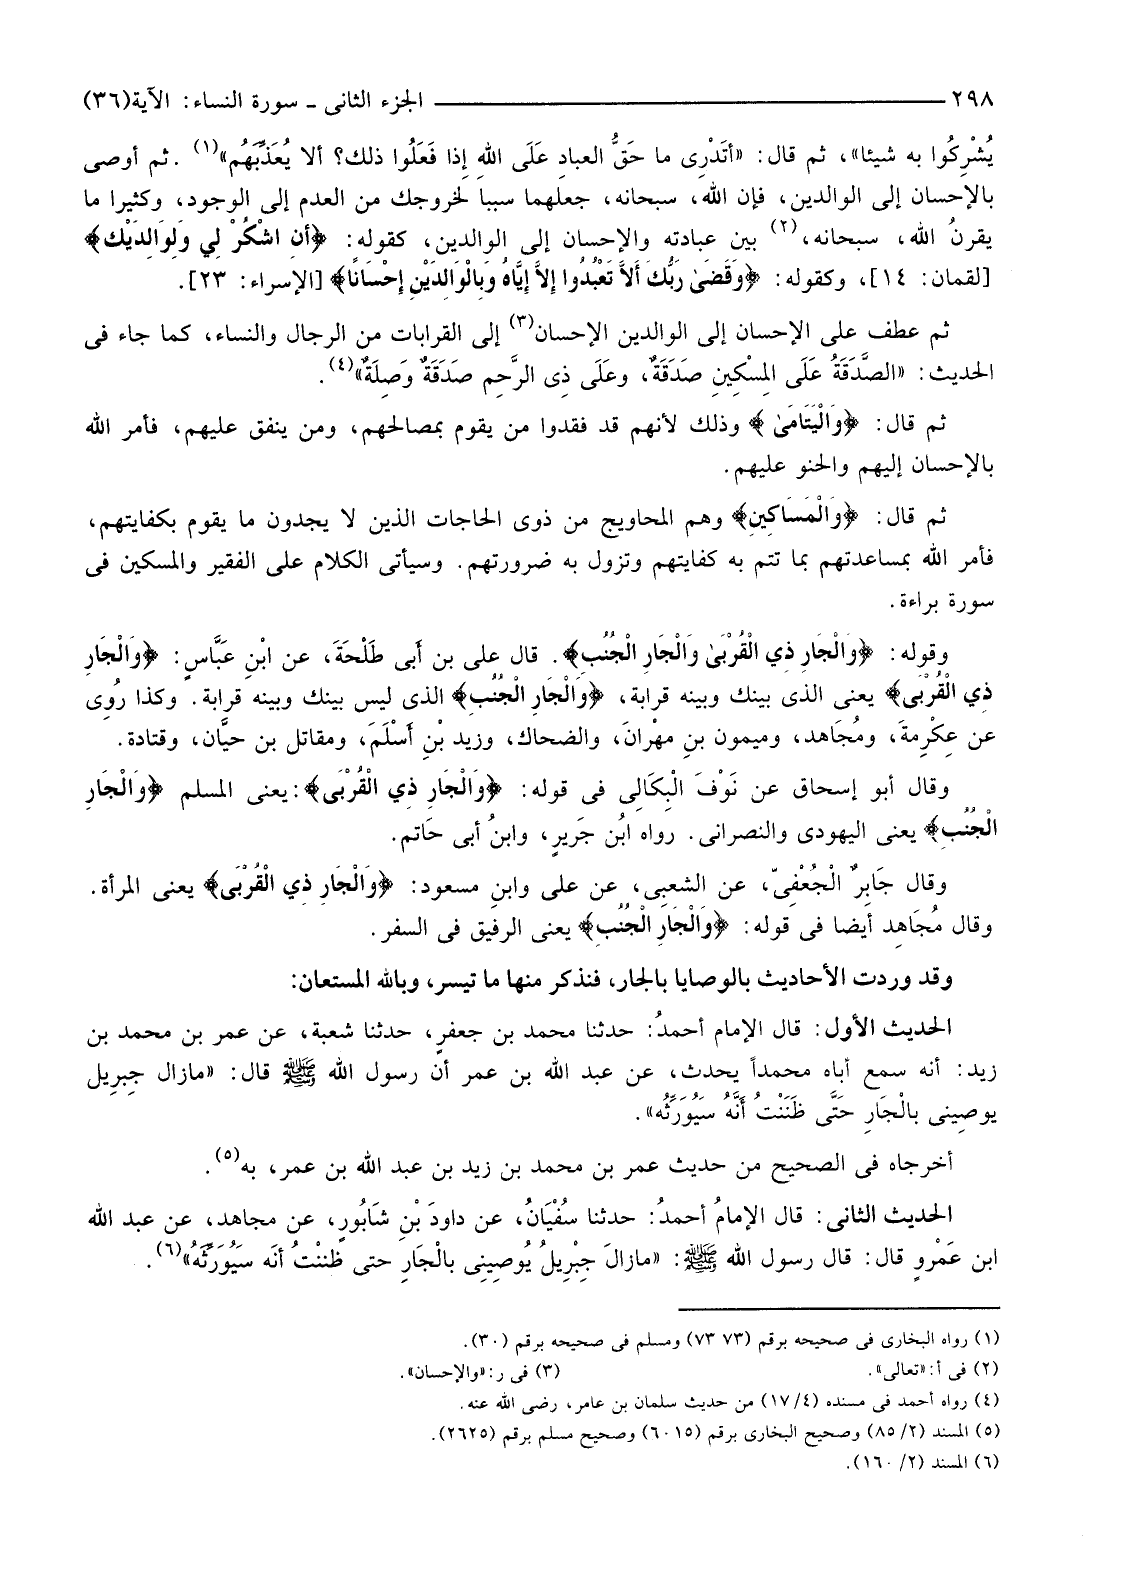 ٢٩٨ ــــــــ الجزء الثانى ـ سورة النساء: الآية(٣٦)
يُشْرِكُوا به شيئا»، ثم قال: «أتَدْرِى ما حَقُّ العبادِ عَلَى اللهِ إذا فَعَلُوا ذلك؟ ألا يُعَذِّبَهُم»(١) .ثم أوصى
بالإحسان إلى الوالدين، فإن الله، سبحانه، جعلهما سببا لخروجك من العدم إلى الوجود، وكثيرا ما
يقرنُ الله، سبحانه،(٢) بين عبادته والإحسان إلى الوالدين، كقوله: ﴿أَنِ اشْكُرْ لِي وَلِوَالِدَيْكَ﴾
[لقمان: ١٤]، وكقوله: ﴿وَقَضَىٰ رَبُّكَ أَلاَّ تَعْبُدُوا إِلاَّ إِيَّاهُ وَبِالْوَالِدَيْنِ إِحْسَانًا﴾ [الإسراء: ٢٣].
ثم عطف على الإحسان إلى الوالدين الإحسان(٣) إلى القرابات من الرجال والنساء، كما جاء فى
الحديث: «الصَّدَقَةُ عَلَى المِسْكِينِ صَدَقَةٌ، وعَلَى ذِى الرَّحِمِ صَدَقَةٌ وَصِلَةٌ»(٤).
ثم قال: ﴿وَالْيَتَامَىٰ﴾ وذلك لأنهم قد فقدوا من يقوم بمصالحهم، ومن ينفق عليهم، فأمر الله
بالإحسان إليهم والحنو عليهم.
ثم قال: ﴿وَالْمَسَاكِينِ﴾ وهم المحاويج من ذوى الحاجات الذين لا يجدون ما يقوم بكفايتهم،
فأمر الله بمساعدتهم بما تتم به كفايتهم وتزول به ضرورتهم. وسيأتى الكلام على الفقير والمسكين فى
سورة براءة.
وقوله: ﴿وَالْجَارِ ذِي الْقُرْبَىٰ وَالْجَارِ الْجُنُبِ﴾. قال على بن أبى طَلْحَةَ، عن ابْنِ عَبَّاسٍ: ﴿وَالْجَارِ
ذِي الْقُرْبَى﴾ يعنى الذى بينك وبينه قرابة، ﴿وَالْجَارِ الْجُنُبِ﴾ الذى ليس بينك وبينه قرابة. وكذا رُوِى
عن عِكْرِمةَ، ومُجَاهد، وميمون بنِ مهْرانَ، والضحاك، وزيد بْنِ أَسْلَمَ، ومقاتل بن حيَّان، وقتادة.
وقال أبو إسحاق عن نَوْفَ الْبِكَالِى فى قوله: ﴿وَالْجَارِ ذِي الْقُرْبَى﴾:يعنى المسلم ﴿وَالْجَارِ
الْجُنُبِ﴾ يعنى اليهودى والنصرانى. رواه ابْن جَرِيرٍ، وابنُ أبى حَاتم.
وقال جَابِرٌ الْجُعْفِىّ، عن الشعبِى، عن على وابنِ مسعود: ﴿وَالْجَارِ ذِي الْقُرْبَى﴾ يعنى المرأة.
وقال مُجَاهِد أيضا فى قوله: ﴿وَالْجَارِ الْجُنُبِ﴾ يعنى الرفيق فى السفر.
وقد وردت الأحاديث بالوصايا بالجار، فنذكر منها ما تيسر، وبالله المستعان:
الحديث الأول: قال الإمام أحمدُ: حدثنا محمد بن جعفرٍ، حدثنا شعبة، عن عمر بن محمد بن
زيد: أنه سمع أباه محمداً يحدث، عن عبد الله بن عمر أن رسول الله ﷺ قال: «مازال جِبرِيل
يوصِينى بالْجَارِ حَتَّى ظَنَنْتُ أنَّهُ سَيُوَرثُه».
أخرجاه فى الصحيح من حديث عمر بن محمد بن زيد بن عبد الله بن عمر، به(٥).
الحديث الثانى: قال الإمامُ أحمدُ: حدثنا سُفْيَانُ، عن داودَ بْنِ شَابُورٍ، عن مجاهد، عن عبد الله
ابن عَمْروٍ قال: قال رسول الله ﷺ: «مازالَ جِبْرِيلُ يُوصِينِى بالْجَارِ حتى ظَننْتُ أنَه سَيُوَرِّثُهُ»(٦).
(١) رواه البخارى فى صحيحه برقم (٧٣ ٧٣) ومسلم فى صحيحه برقم (٣٠).
(٢) فى أ: «تعالى». (٣) فى ر: «والإحسان».
(٤) رواه أحمد فى مسنده (٤/ ١٧) من حديث سلمان بن عامر، رضى الله عنه.
(٥) المسند (٢/ ٨٥) وصحيح البخارى برقم (٦٠١٥) وصحيح مسلم برقم (٢٦٢٥).
(٦) المسند (٢/ ١٦٠).